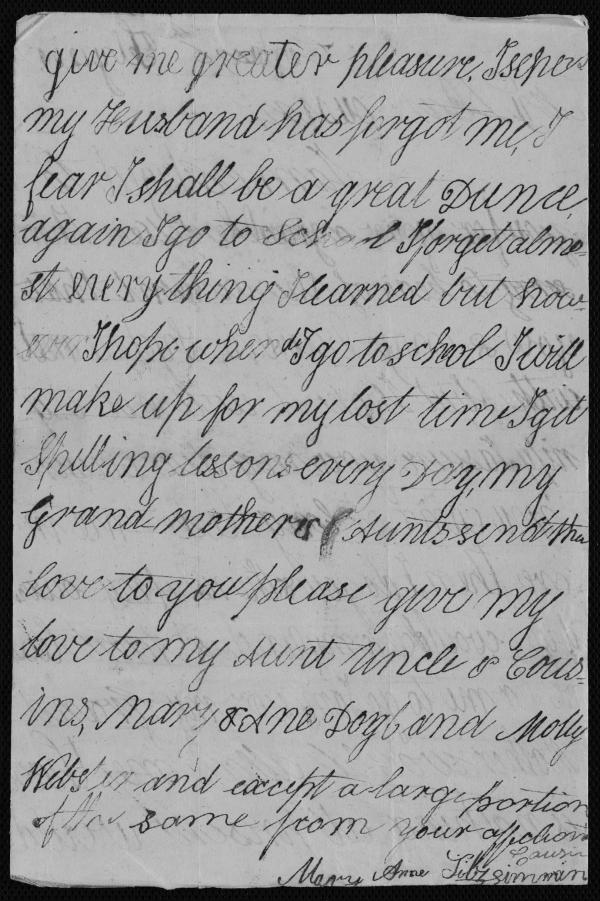 give me greater pleasure, I
my Husband has forgot me, I
fear I shall be a great Dunce
again I go to School I forget almo-
st every thing I learned but how-
ever I hope when I go to school I will
make up for my lost time I get
Spilling lessons every Day, my
Grand mother & Aunts send thei
love to you please give my
love to my Aunt Uncle & Cous-
ins, Mary & Ane Doyl and Molly
Webster and except a large portion
of the same from your affection
Cousin
Mary Anne Fitzsimman